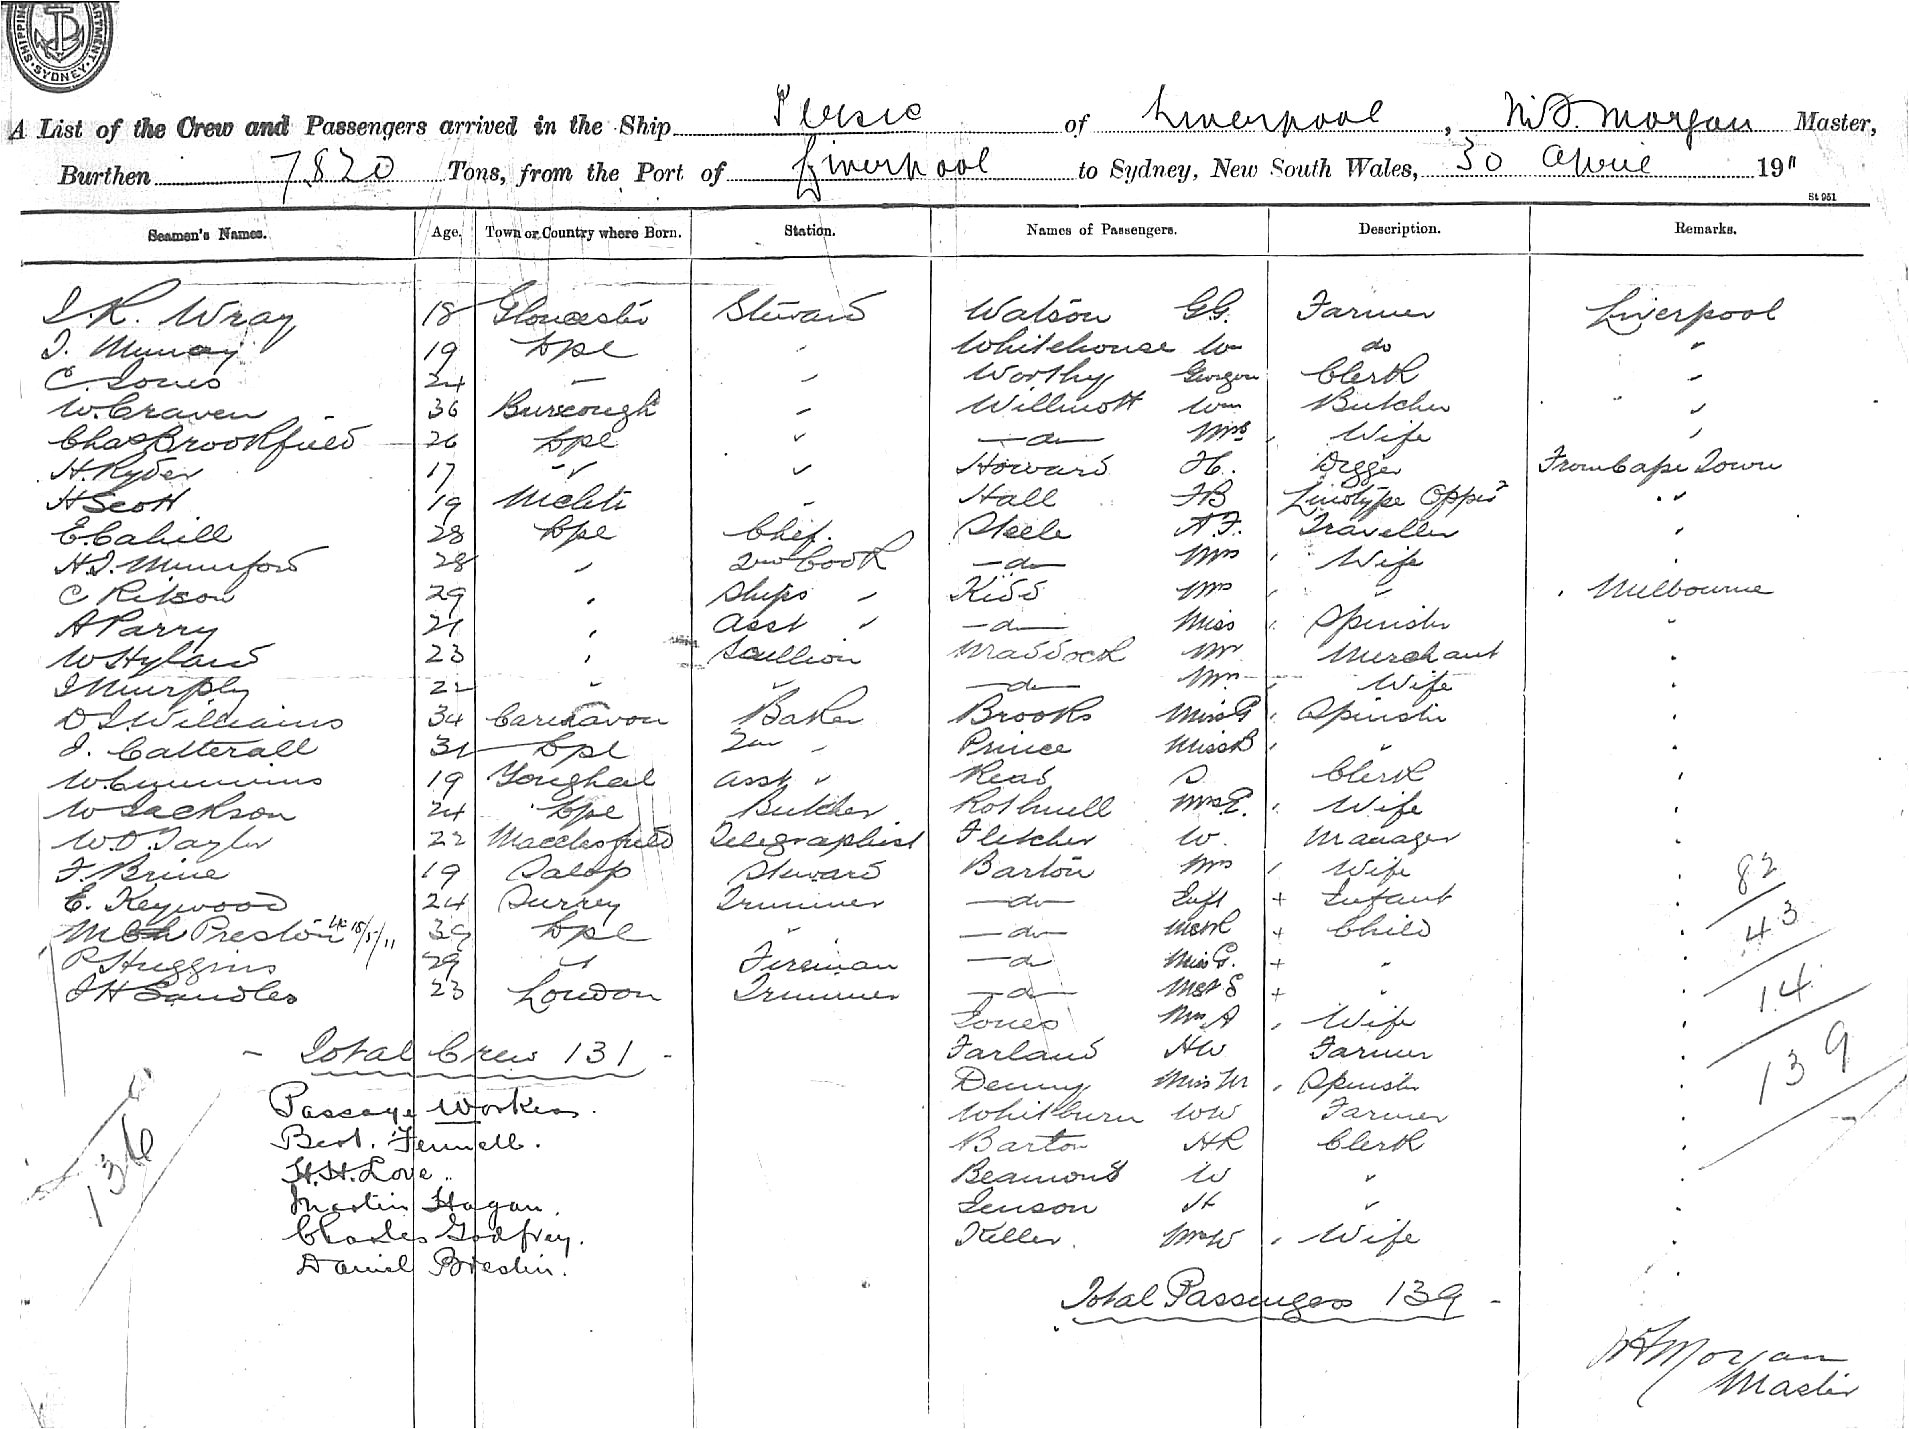 SHIPPING DEPARTMENT SYDNEY
A List of the Crew and Passengers arrived in the Ship Persic of Liverpool, Morgan Master,
Burthen 7,820 Tons, from the Port of Liverpool to Sydney, New South Wales, 30 April 1911
St 951
Seamen's Names. Age. Town or Country where Born. Station. Names of Passengers. Description. Remarks.
J.R. Wray 18 Gloucester Steward Watson G.G. Farmer Liverpool
J. Murray 19 Lpl " Whitehouse Wm do "
C. Jones 24 " " Worthy Clerk "
W. Craven 36 Burscough " Willmott Wm Butcher "
Chas Brookfield 26 Lpl " do Mrs Wife "
H. Ryder 17 " " Howard H. Digger From Cape Town
H Scott 19 " Hall FB Linotype "
E. Cahill 28 Lpl Chef. Steele A.F. Traveller "
H.J. Mumford 28 " 2nd Cook do Mrs Wife
C Ritson 29 " Ships " Kidd Mrs " Melbourne
A Parry 21 " Asst " do Miss Spinster "
W Hyland 23 " Scullion Maddock Mr Merchant
J Murphy 22 " " do Mrs Wife
D J Williams 34 Carnarvon Baker Brooks Miss G Spinster
J. Catterall 31 Lpl 2nd " Prince Miss B "
W. Cummins 19 Youghal asst " Read S Clerk
W Jackson 24 Lpl Butcher Rothwell Mrs E. Wife
W.O. Taylor 22 Macclesfield Telegraphist Fletcher W. Manager
F. Brine 19 Salop Steward Barton Mrs Wife
E. Keywood 24 Surrey Trimmer do Inft + Infant
Preston 18/5/11 39 Lpl " do + Child
P. Huggins 29 " Fireman do Miss G. + "
J H Sandles 23 London Trimmer do Mst S + "
Jones Mrs A Wife
Farland HW Farmer
Denny Miss M Spinster
Whitburn WW Farmer
Barton HR Clerk
Beamond W "
Jenson H "
Keller. Mrs W Wife
- Total Crew 131 -
Passage Workers.
Bert. Fennell.
H.H. Love "
Martin Hagan.
Charles Godfrey.
Daniel Breslin.
136
Total Passengers 139 -
82
43
14
139
Morgan
Master